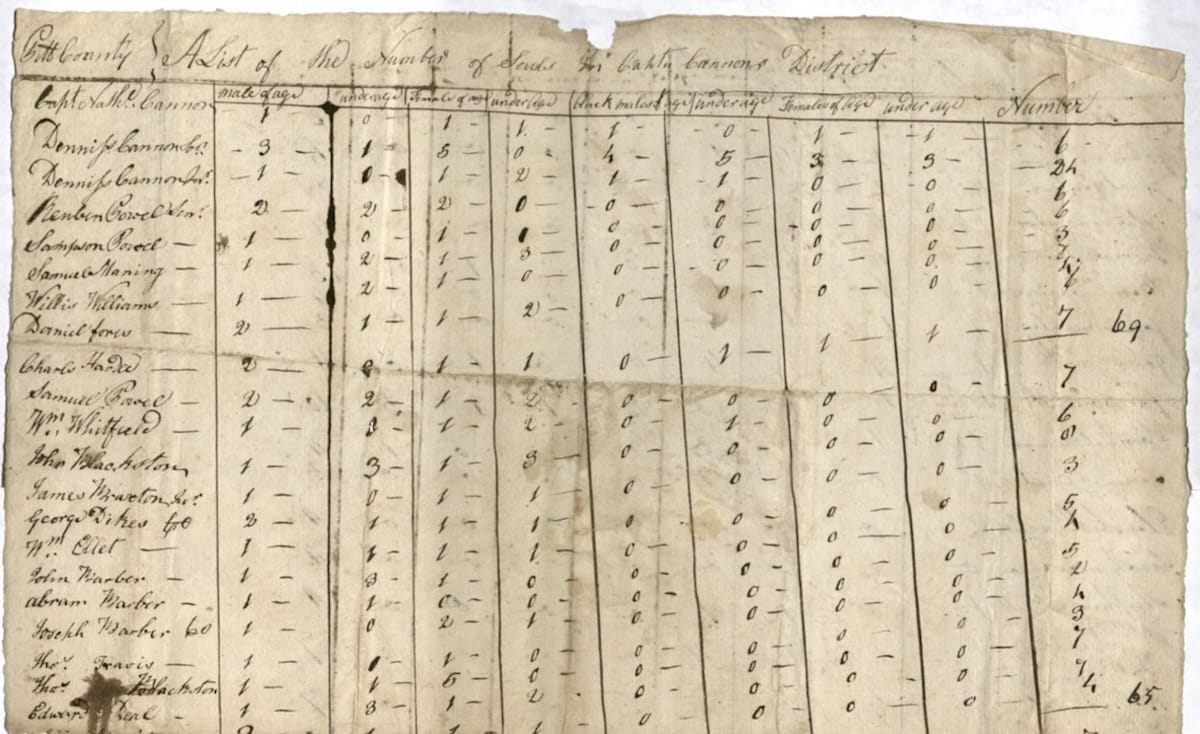 Pitt County } A List of the Number of Souls in Captn Cannons District
Capt. Nathl. Cannon male of age under age Female of age under age black males of age under age Females of age under age Number
1 0 1 1 1 0 1 1 6
Dennis Cannon Sr. 3 1 5 0 4 5 3 3 24
Dennis Cannon Jnr. 1 0 1 2 1 1 0 0 6
Reuben Powel Senr. 2 2 2 0 0 0 0 0 6
Sampson Powel 1 0 1 1 0 0 0 0 3
Samuel Maning 1 2 1 3 0 0 0 0 7
Willis Williams 1 2 1 0 0 0 0 0 4
Daniel fores 2 1 1 2 0 0 0 0 6
7 69
Charls Hardee 2 0 1 1 0 1 1 1 7
Samuel Powel 2 2 1 2 0 0 0 0 7
Wm. Whitfield 1 1 2 0 1 0 0 6
John Blackston 1 3 1 3 0 0 0 0 8
James Braxton Jnr. 1 0 1 1 0 0 0 0 3
George Dikes 2 1 1 1 0 0 0 0 5
Wm. Ellet 1 1 1 1 0 0 0 0 4
John Barber 1 3 1 0 0 0 0 0 5
abram Barber 1 1 0 0 0 0 0 0 2
Joseph Barber 1 0 2 1 0 0 0 0 4
Thos. Travis 1 1 0 0 0 0 0 3
Thos. Blackston 1 1 5 0 0 0 0 0 7
Edward Deal 1 3 1 2 0 0 0 0
4 65